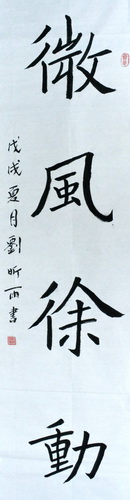 微風徐動
戊戌夏月劉昕雨書